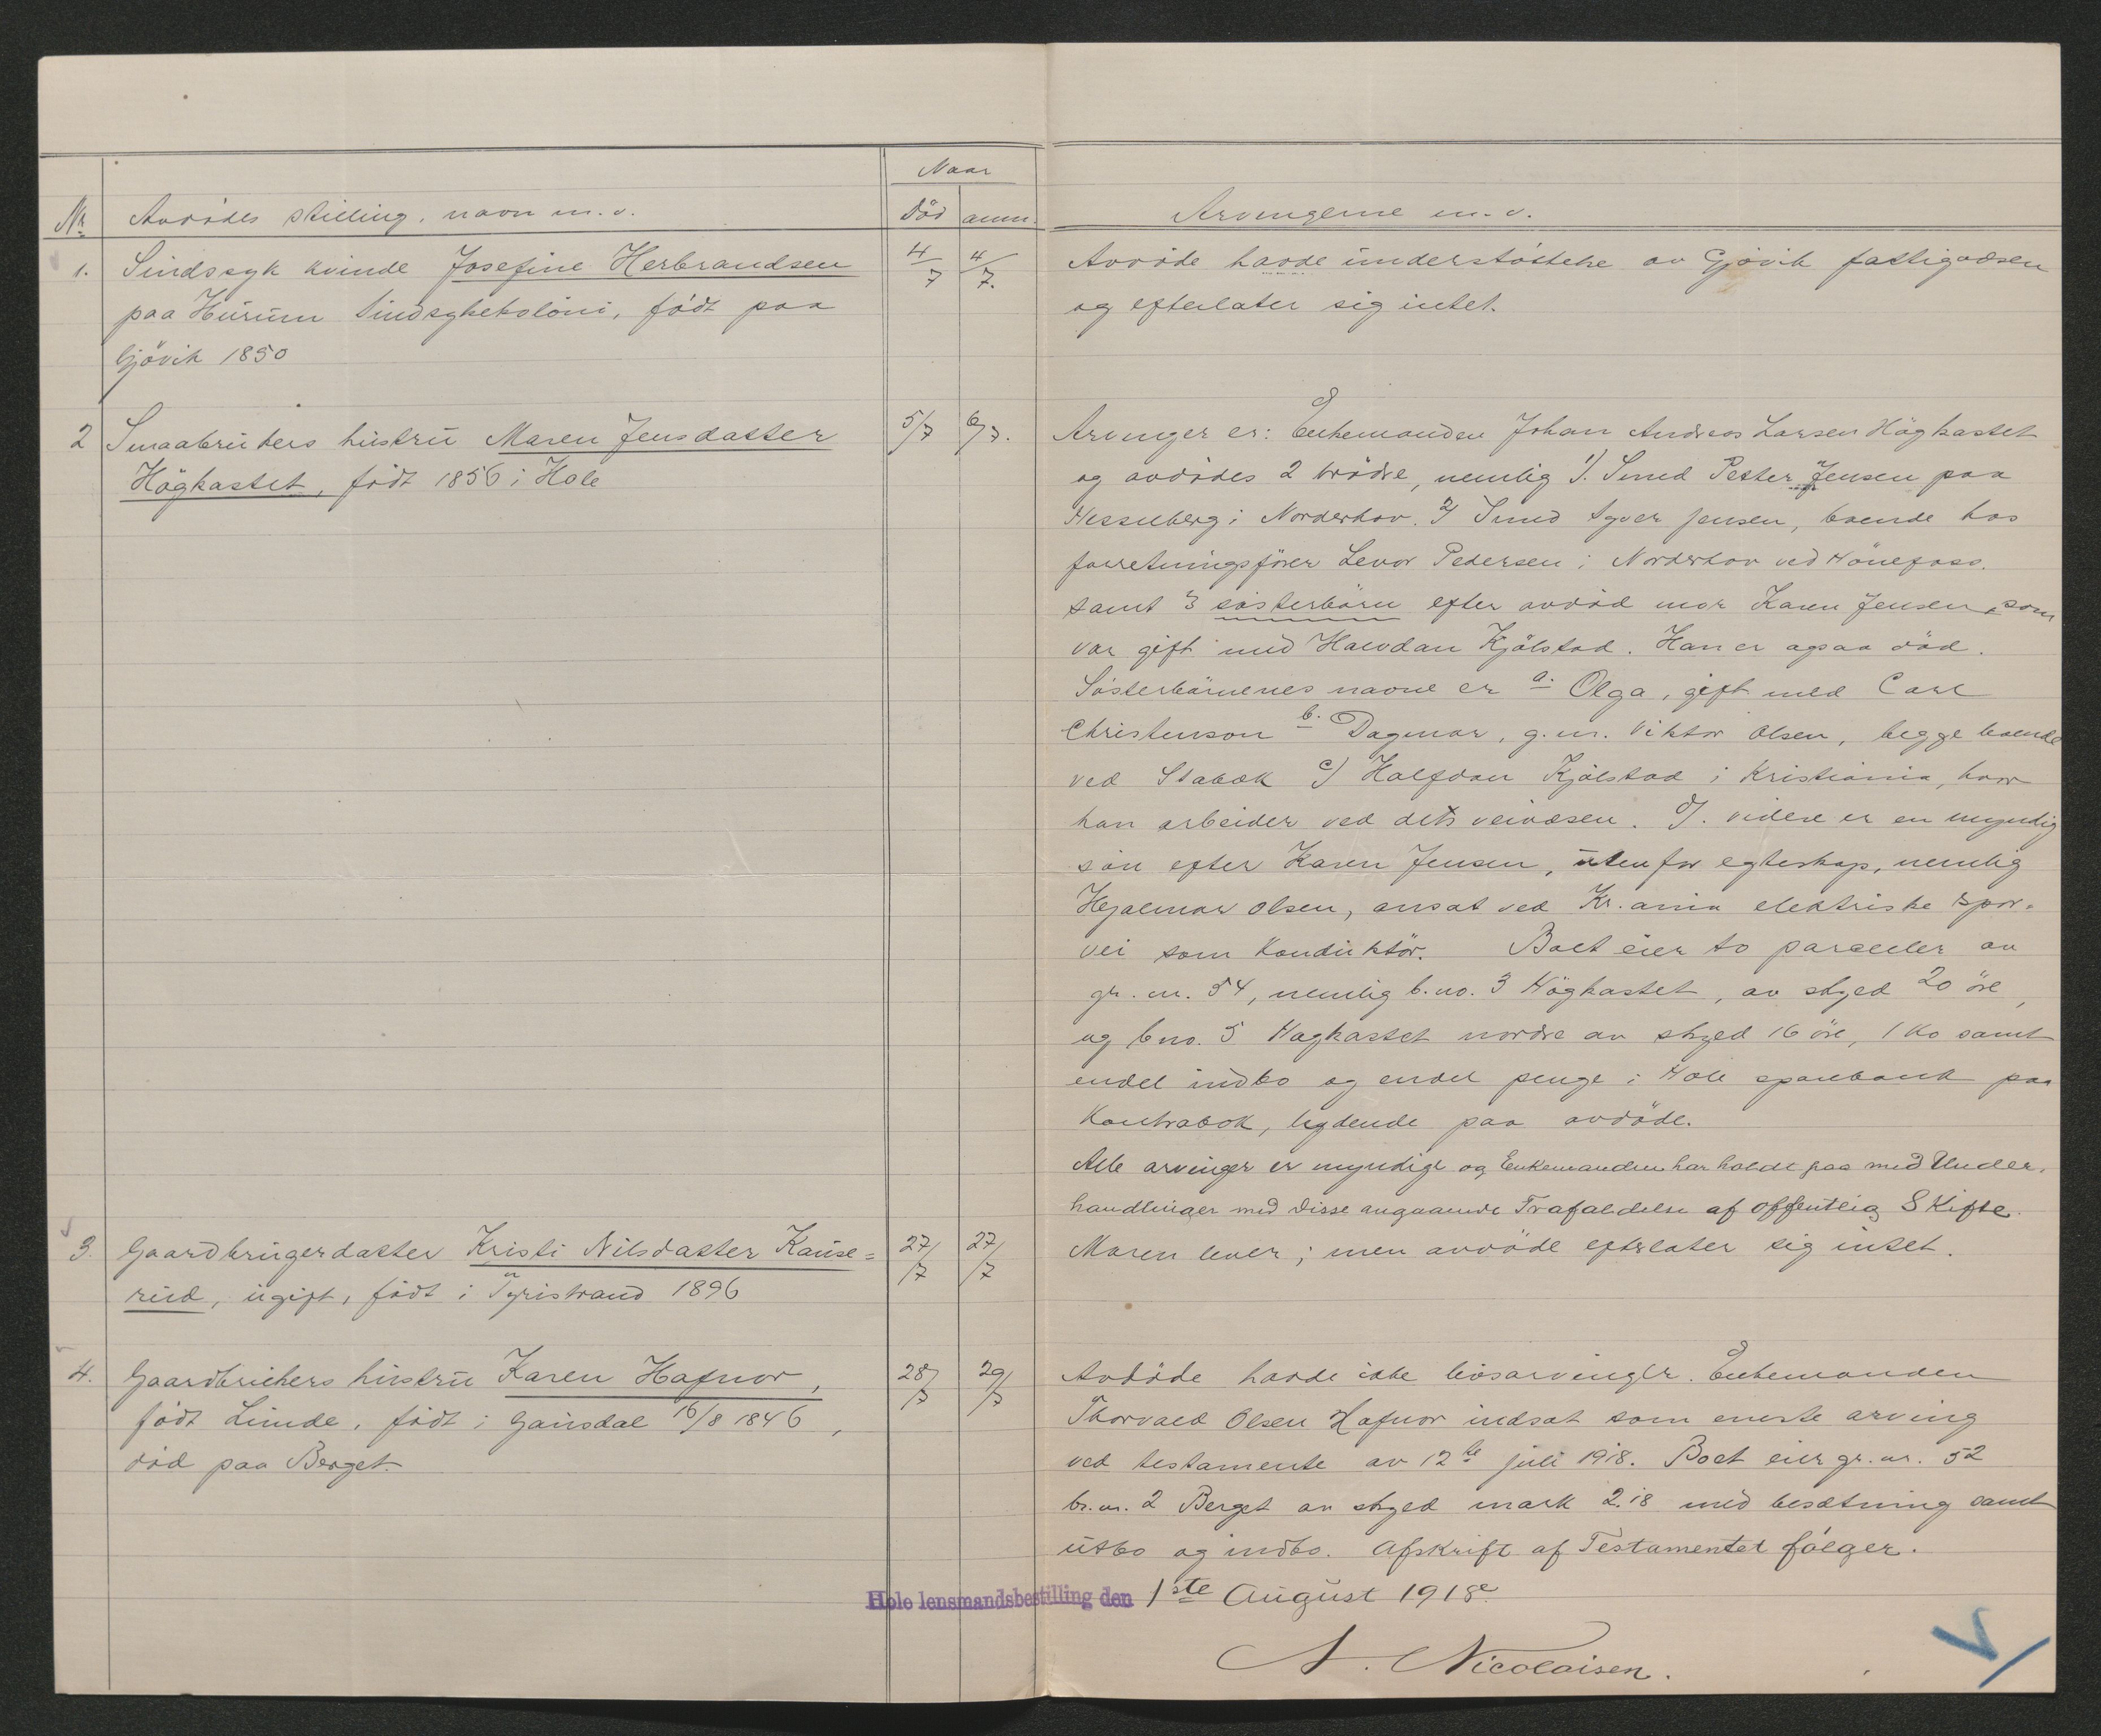 Naar
Nr. Avdödes stilling, navn m.v. Död anm. Arvingerne m.v.
1. Sindssyk kvinde Josefine Herbrandsen 4/7 4/7.
paa Hurum Sindsykekoloni, född paa
Gjövik 1850
Avdöde havde understöttelse av Gjövik fattigvæsen
og efterlater sig intet.
2 Smaabrukers hustru Maren Jensdatter 5/7 6/7.
Högkastet, född 1856 i Hole
Arvinger er: Enkemanden Johan Andreas Larsen Högkastet
og avdödes 2 brödre, nemlig 1). Smed Petter Jensen paa
Hesselberg i Norderhov. 2) Smed Syver Jensen, boende hos
forretningsförer Levor Pedersen i Norderhov ved Hönefoss.
samt 3 sösterbörn efter avdöd mor Karen Jensen, som
var gift med Halvdan Kjölstad. Han er ogsaa död.
Sösterbörnenes navne er a. Olga, gift med Carl
Christenson b. Dagmar, g.m. Viktor Olsen, begge boende
ved Stabæk c) Halfdan Kjölstad i Kristiania, hvor
han arbeider ved dets veivæsen. d). videre er en myndig
sön efter Karen Jensen, utenfor egteskap, nemlig
Hjalmar Olsen, ansat ved Kr.ania elektriske spor-
vei som Konduktör. Boet eier to parceller av
gr. nr. 54, nemlig b.no. 3 Högkastet, av skyld 20 öre,
og bno. 5 Hagkastet nordre av skyld 16 öre, 1 ko samt
endel indbo og endel penge i Hole sparebank paa
Kontrabok, lydende paa avdöde.
Alle arvinger er myndige og Enkemanden har holdt paa med Under-
handlinger med disse angaaende Frafaldelse af offentlig Skifte.
3. Gaardbrugerdatter Kristi Nilsdatter Kause= 27/7 27/7
rud, ugift, född i Tyristrand 1896
Moren lever; men avdöde efterlater sig intet.
4. Gaardbrukers hustru Karen Hafnor, 28/7 29/7
född Linde, född i Gausdal 16/8 1846,
död paa Berget.
Avdöde havde ikke livsarvinger. Enkemanden
Thorvald Olsen Hafnor indsat som eneste arving
ved testamente av 12te juli 1918. Boet eier gr. nr. 52
br. nr. 2 Berget av skyld mark 2.18 med besætning samt
utbo og indbo. Afskrift af Testamentet fölger.
Hole lensmandsbestilling den 1ste August 1918.
A. Nicolaisen.